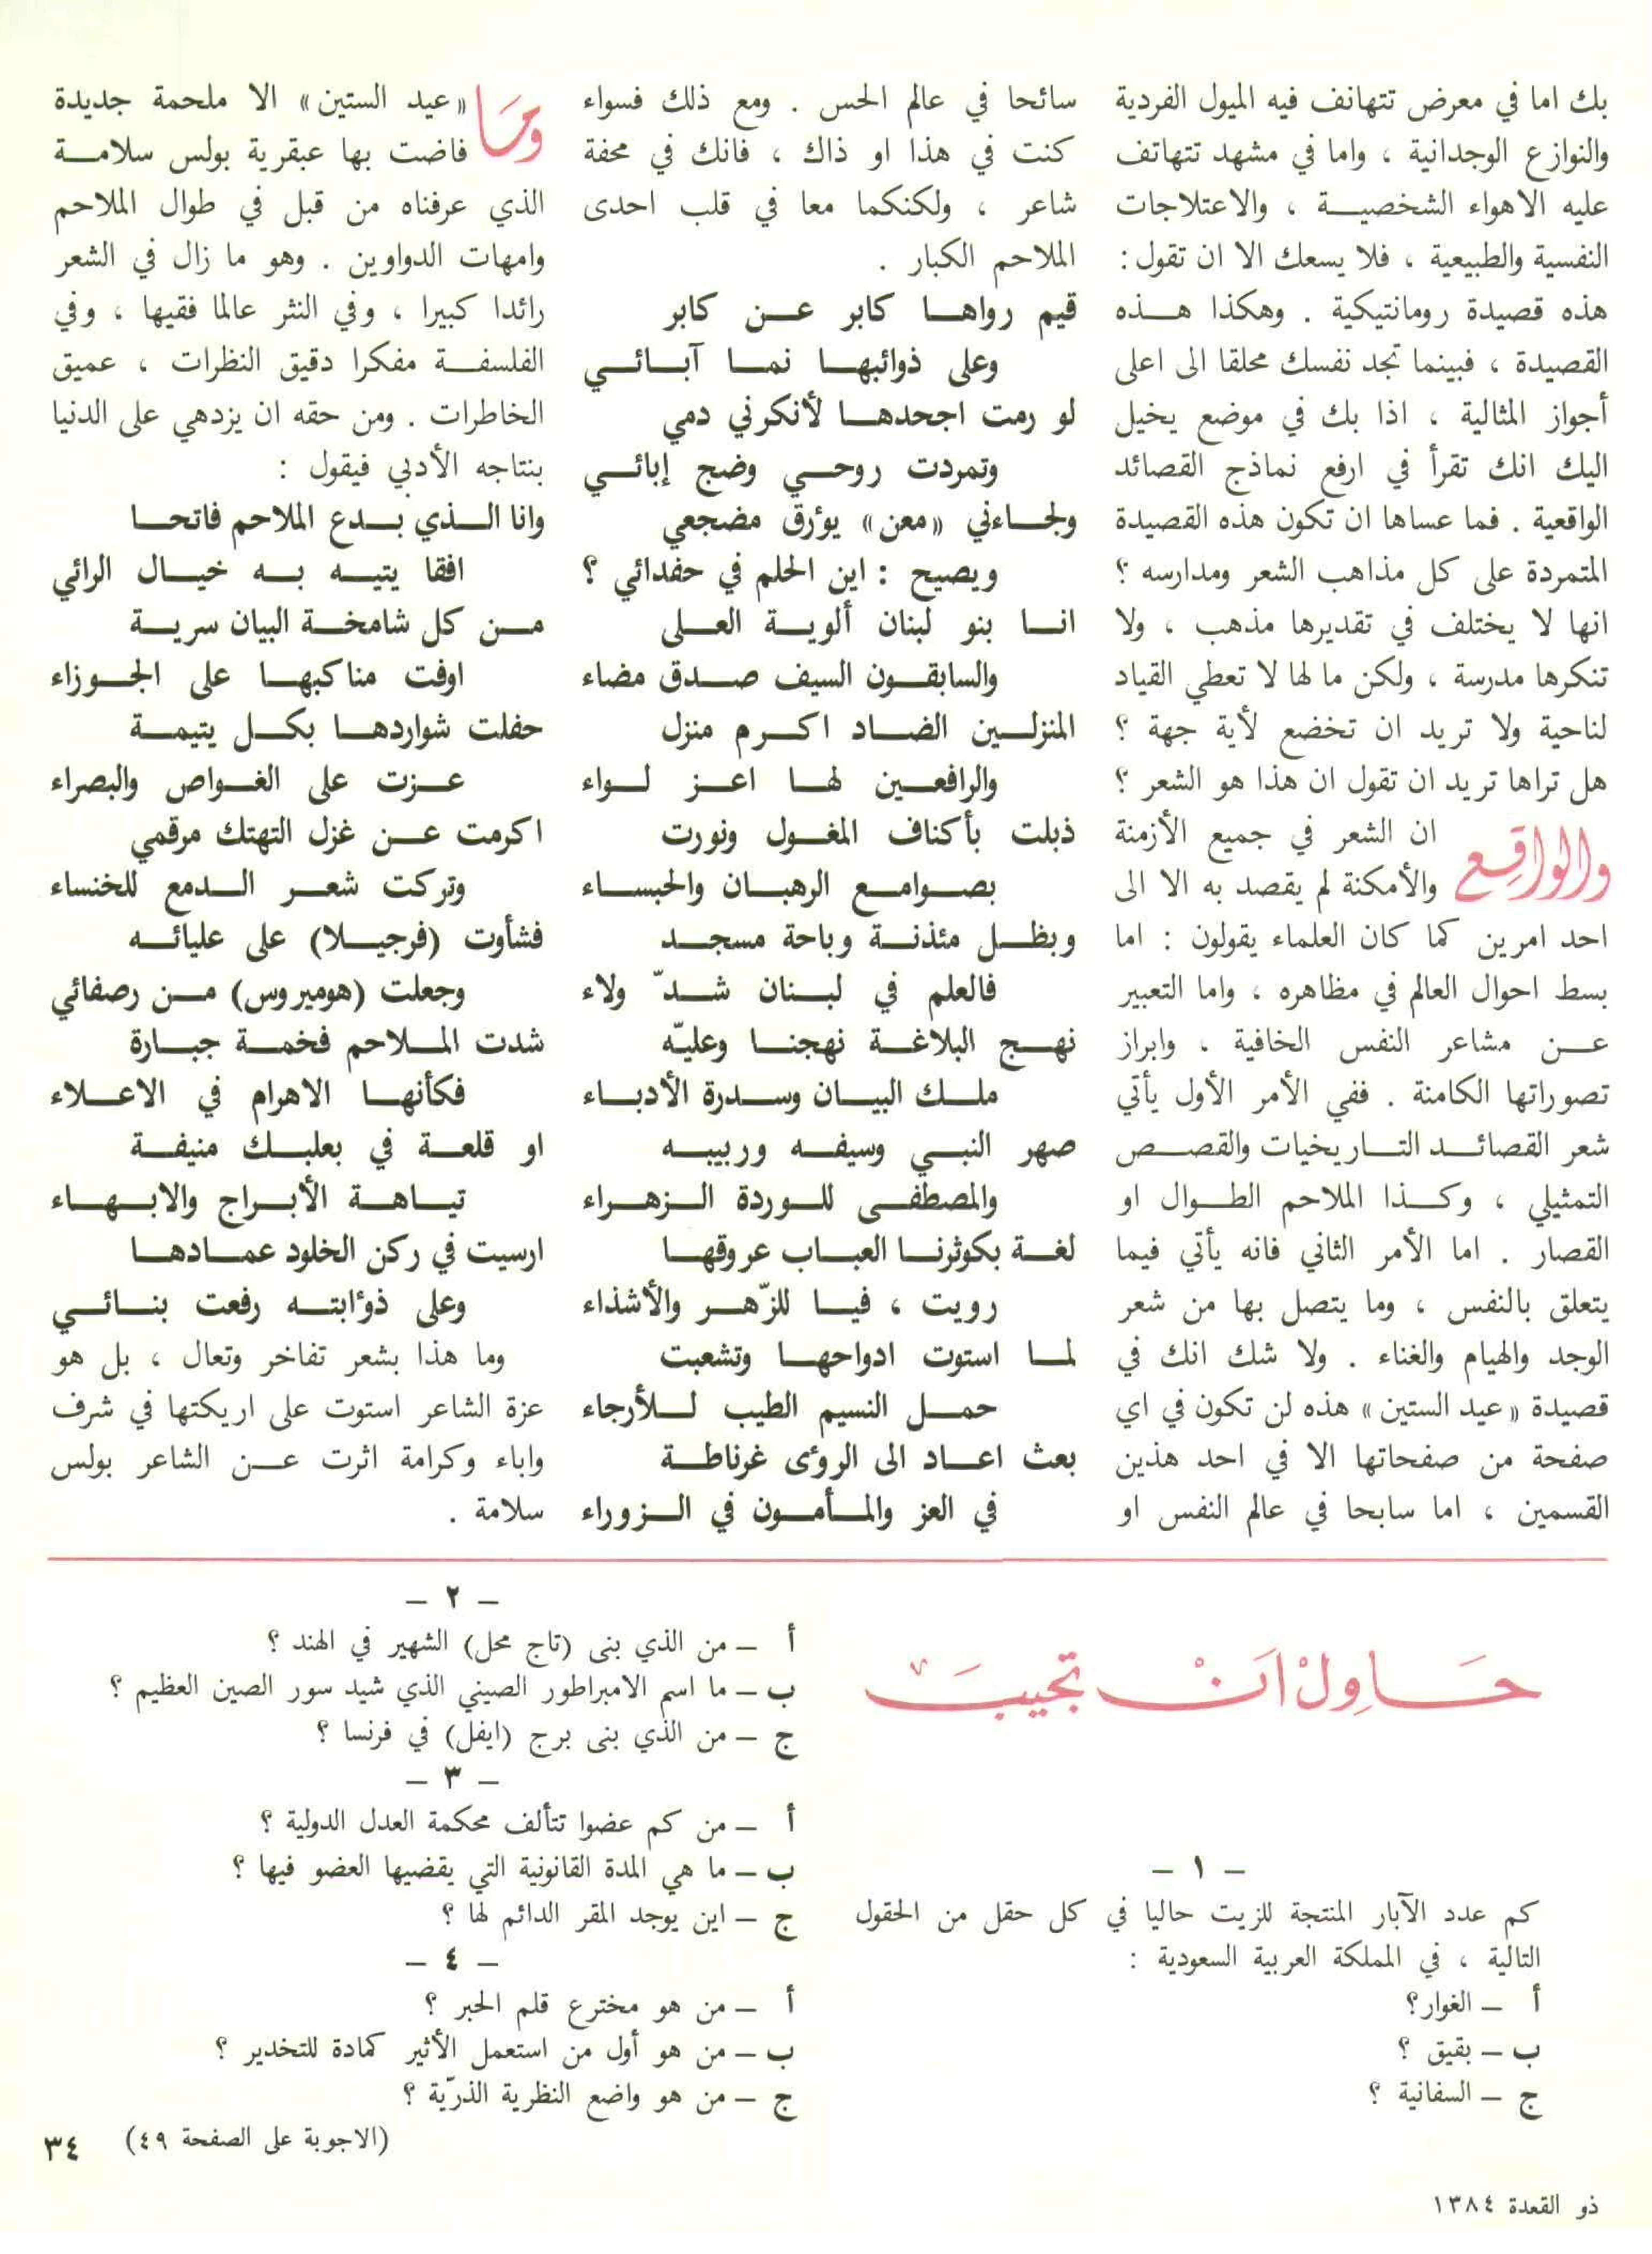 بك اما في معرض تتهانف فيه الميول الفردية
والنوازع الوجدانية ، واما في مشهد تتهاتف
عليه الاهواء الشخصيــة ، والاعتلاجات
النفسية والطبيعية ، فلا يسعك الا ان تقول :
هذه قصيدة رومانتيكية . وهكذا هــذه
القصيدة ، فبينما تجد نفسك محلقا الى اعلى
أجواز المثالية ، اذا بك في موضع يخيل
اليك انك تقرأ في ارفع نماذج القصائد
الواقعية . فما عساها ان تكون هذه القصيدة
المتمردة على كل مذاهب الشعر ومدارسه ؟
انها لا يختلف في تقديرها مذهب ، ولا
تنكرها مدرسة ، ولكن ما لها لا تعطي القياد
لناحية ولا تريد ان تخضع لأية جهة ؟
هل تراها تريد ان تقول ان هذا هو الشعر ؟
والواقع ان الشعر في جميع الأزمنة
والأمكنة لم يقصد به الا الى
احد امرين كما كان العلماء يقولون : اما
بسط احوال العالم في مظاهره ، واما التعبير
عــن مشاعر النفس الخافية ، وابراز
تصوراتها الكامنة . ففي الأمر الأول يأتي
شعر القصائــد التــاريخيات والقصــص
التمثيلي ، وكــذا الملاحم الطــوال او
القصار . اما الأمر الثاني فانه يأتي فيما
يتعلق بالنفس ، وما يتصل بها من شعر
الوجد والهيام والغناء . ولا شك انك في
قصيدة «عيد الستين» هذه لن تكون في اي
صفحة من صفحاتها الا في احد هذين
القسمين ، اما سابحا في عالم النفس او
سائحا في عالم الحس . ومع ذلك فسواء
كنت في هذا او ذاك ، فانك في محفة
شاعر ، ولكنكما معا في قلب احدى
الملاحم الكبار .
قيم رواهــا كابر عــن كابر
وعلى ذوائبهــا نمــا آبــائــي
لو رمت اجحدهــا لأنكرني دمي
وتمردت روحــي وضج إبائــي
ولجــاءني «معن» يؤرق مضجعي
ويصيح : اين الحلم في حفدائي ؟
انــا بنو لبنان ألويــة العــلى
والسابقــون السيف صــدق مضاء
المنزلــين الضــاد اكــرم منزل
والرافعــين لهــا اعــز لــواء
ذبلت بأكناف المغــول ونورت
بصــوامــع الرهبــان والحبســاء
وبظــل مئذنــة وباحة مسجــد
فالعلم في لبــنان شــدّ ولاء
نهــج البلاغــة نهجنــا وعليّه
ملــك البيــان وســدرة الأدبــاء
صهر النبــي وسيفــه وربيبــه
والمصطفــى للــوردة الــزهــراء
لغــة بكوثرنــا العبــاب عروقهــا
رويت ، فيــا للزّهــر والأشذاء
لمــا استوت ادواحهــا وتشعبت
حمــل النسيم الطيب لــلأرجاء
بعث اعــاد الى الرؤى غرناطــة
في العز والمــأمــون في الــزوراء
ومَا «عيد الستين» الا ملحمة جديدة
فاضت بها عبقرية بولس سلامــة
الذي عرفناه من قبل في طوال الملاحم
وامهات الدواوين . وهو ما زال في الشعر
رائدا كبيرا ، وفي النثر عالما فقيها ، وفي
الفلسفــة مفكرا دقيق النظرات ، عميق
الخاطرات . ومن حقه ان يزدهي على الدنيا
بنتاجه الأدبي فيقول :
وانا الــذي بــدع الملاحم فاتحــا
افقا يتيــه بــه خيــال الرائي
مــن كل شامخــة البيان سريــة
اوفت مناكبهــا على الجــوزاء
حفلت شواردهــا بكــل يتيمــة
عــزت على الغــواص والبصراء
اكرمت عــن غزل التهتك مرقمي
وتركت شعــر الــدمع للخنساء
فشأوت (فرجيــلا) على عليائــه
وجعلت (هوميروس) مــن رصفائي
شدت المــلاحم فخمــة جبــارة
فكأنهــا الاهرام في الاعــلاء
او قلعــة في بعلبــك منيفــة
تيــاهــة الأبــراج والابــهــاء
ارسيت في ركن الخلود عمــادهــا
وعلى ذؤابتــه رفعت بنــائــي
وما هذا بشعر تفاخر وتعال ، بل هو
عزة الشاعر استوت على اريكتها في شرف
واباء وكرامة اثرت عــن الشاعر بولس
سلامة .
حَــاوِلْ اَنْ تجيبَ
– ١ –
كم عدد الآبار المنتجة للزيت حاليا في كل حقل من الحقول
التالية ، في المملكة العربية السعودية :
أ – الغوار؟
ب – بقيق ؟
ج – السفانية ؟
– ٢ –
أ – من الذي بنى (تاج محل) الشهير في الهند ؟
ب – ما اسم الامبراطور الصيني الذي شيد سور الصين العظيم ؟
ج – من الذي بنى برج (ايفل) في فرنسا ؟
– ٣ –
أ – من كم عضوا تتألف محكمة العدل الدولية ؟
ب – ما هي المدة القانونية التي يقضيها العضو فيها ؟
ج – اين يوجد المقر الدائم لها ؟
– ٤ –
أ – من هو مخترع قلم الحبر ؟
ب – من هو أول من استعمل الأثير كمادة للتخدير ؟
ج – من هو واضع النظرية الذرّية ؟
(الاجوبة على الصفحة ٤٩)
٣٤
ذو القعدة ١٣٨٤